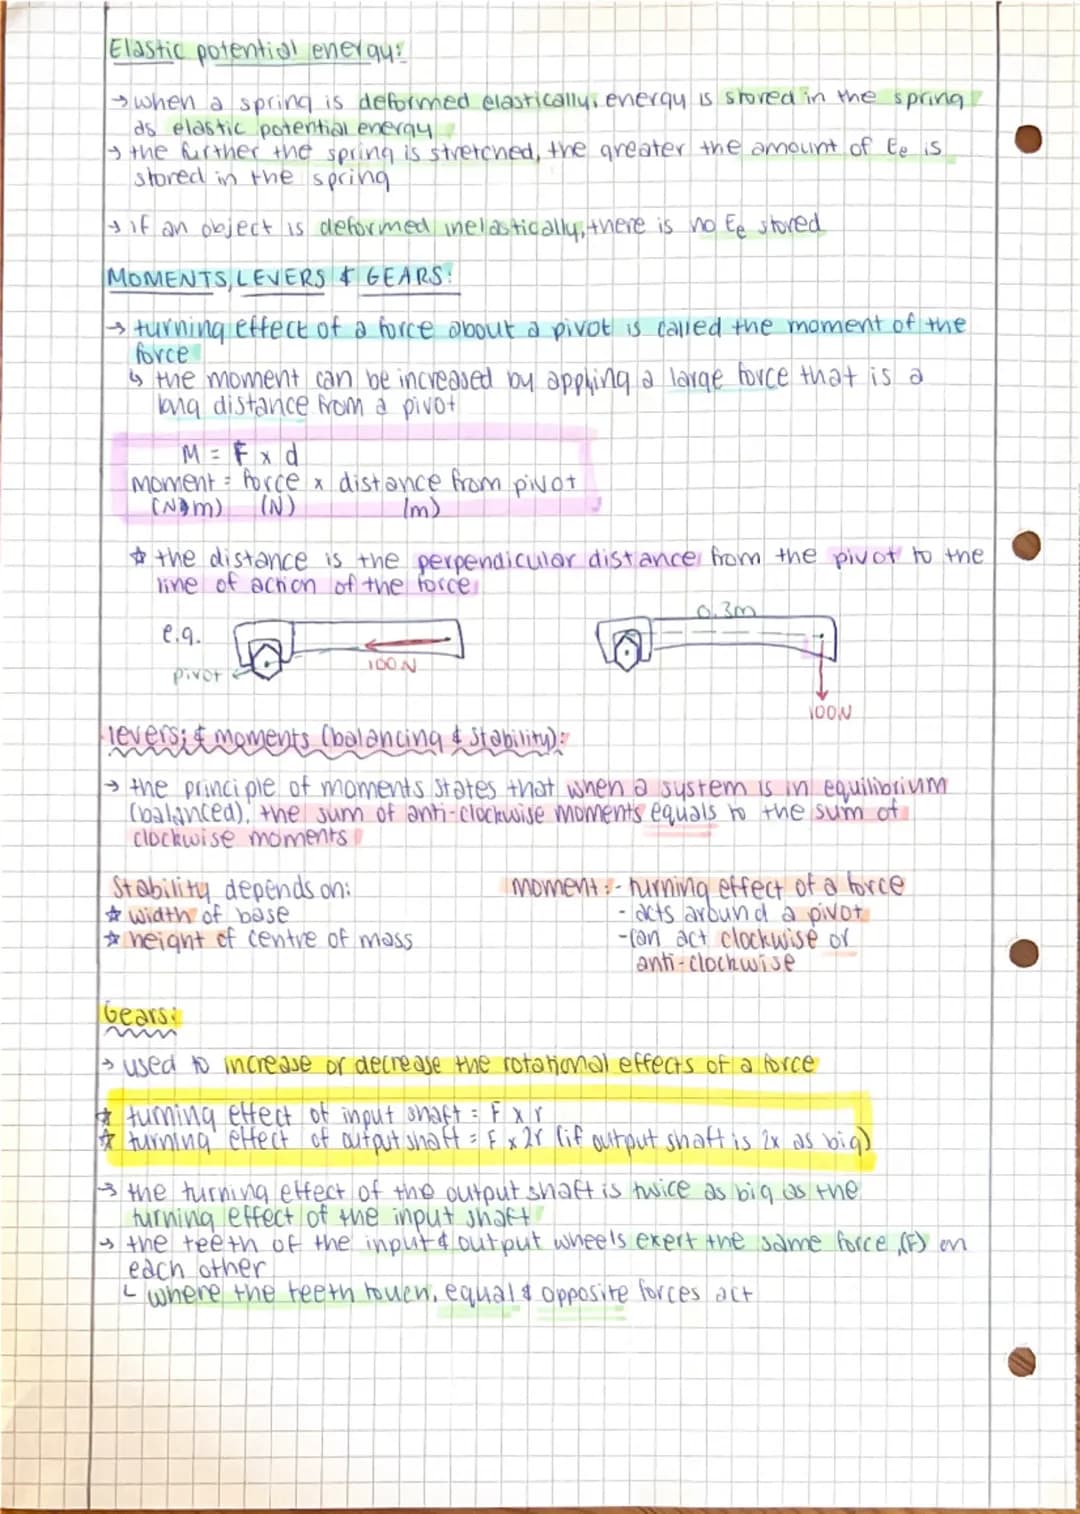 Elastic potential energy:
→ when a spring is deformed elastically, energy is stored in the spring
as elastic potential energy
→ the further the spring is stretched, the greater the amount of Ee is
stored in the spring
→ if an object is deformed inelastically, there is no Ee stored
MOMENTS, LEVERS & GEARS:
→ turning effect of a force about a pivot is called the moment of the
force
↳ the moment can be increased by applying a large force that is a
long distance from a pivot
M = F x d
moment = force x distance from pivot
(Nm) (N) (m)
☆ the distance is the perpendicular distance from the pivot to the
line of action of the force
e.g.
pivot
100N
0.3m
100N
levers: & moments (balancing & stability):
→ the principle of moments states that when a system is in equilibrium
(balanced), the sum of anti-clockwise moments equals to the sum of
clockwise moments
Stability depends on:
☆ width of base
☆ height of centre of mass
moment: - turning effect of a force
- acts around a pivot
- can act clockwise or
anti-clockwise
Gears:
→ used to increase or decrease the rotational effects of a force
☆ turning effect of input shaft = F x r
☆ turning effect of output shaft = F x 2r (if output shaft is 2x as big)
→ the turning effect of the output shaft is twice as big as the
turning effect of the input shaft
→ the teeth of the input & output wheels exert the same force (F) on
each other
↳ where the teeth touch, equal & opposite forces act